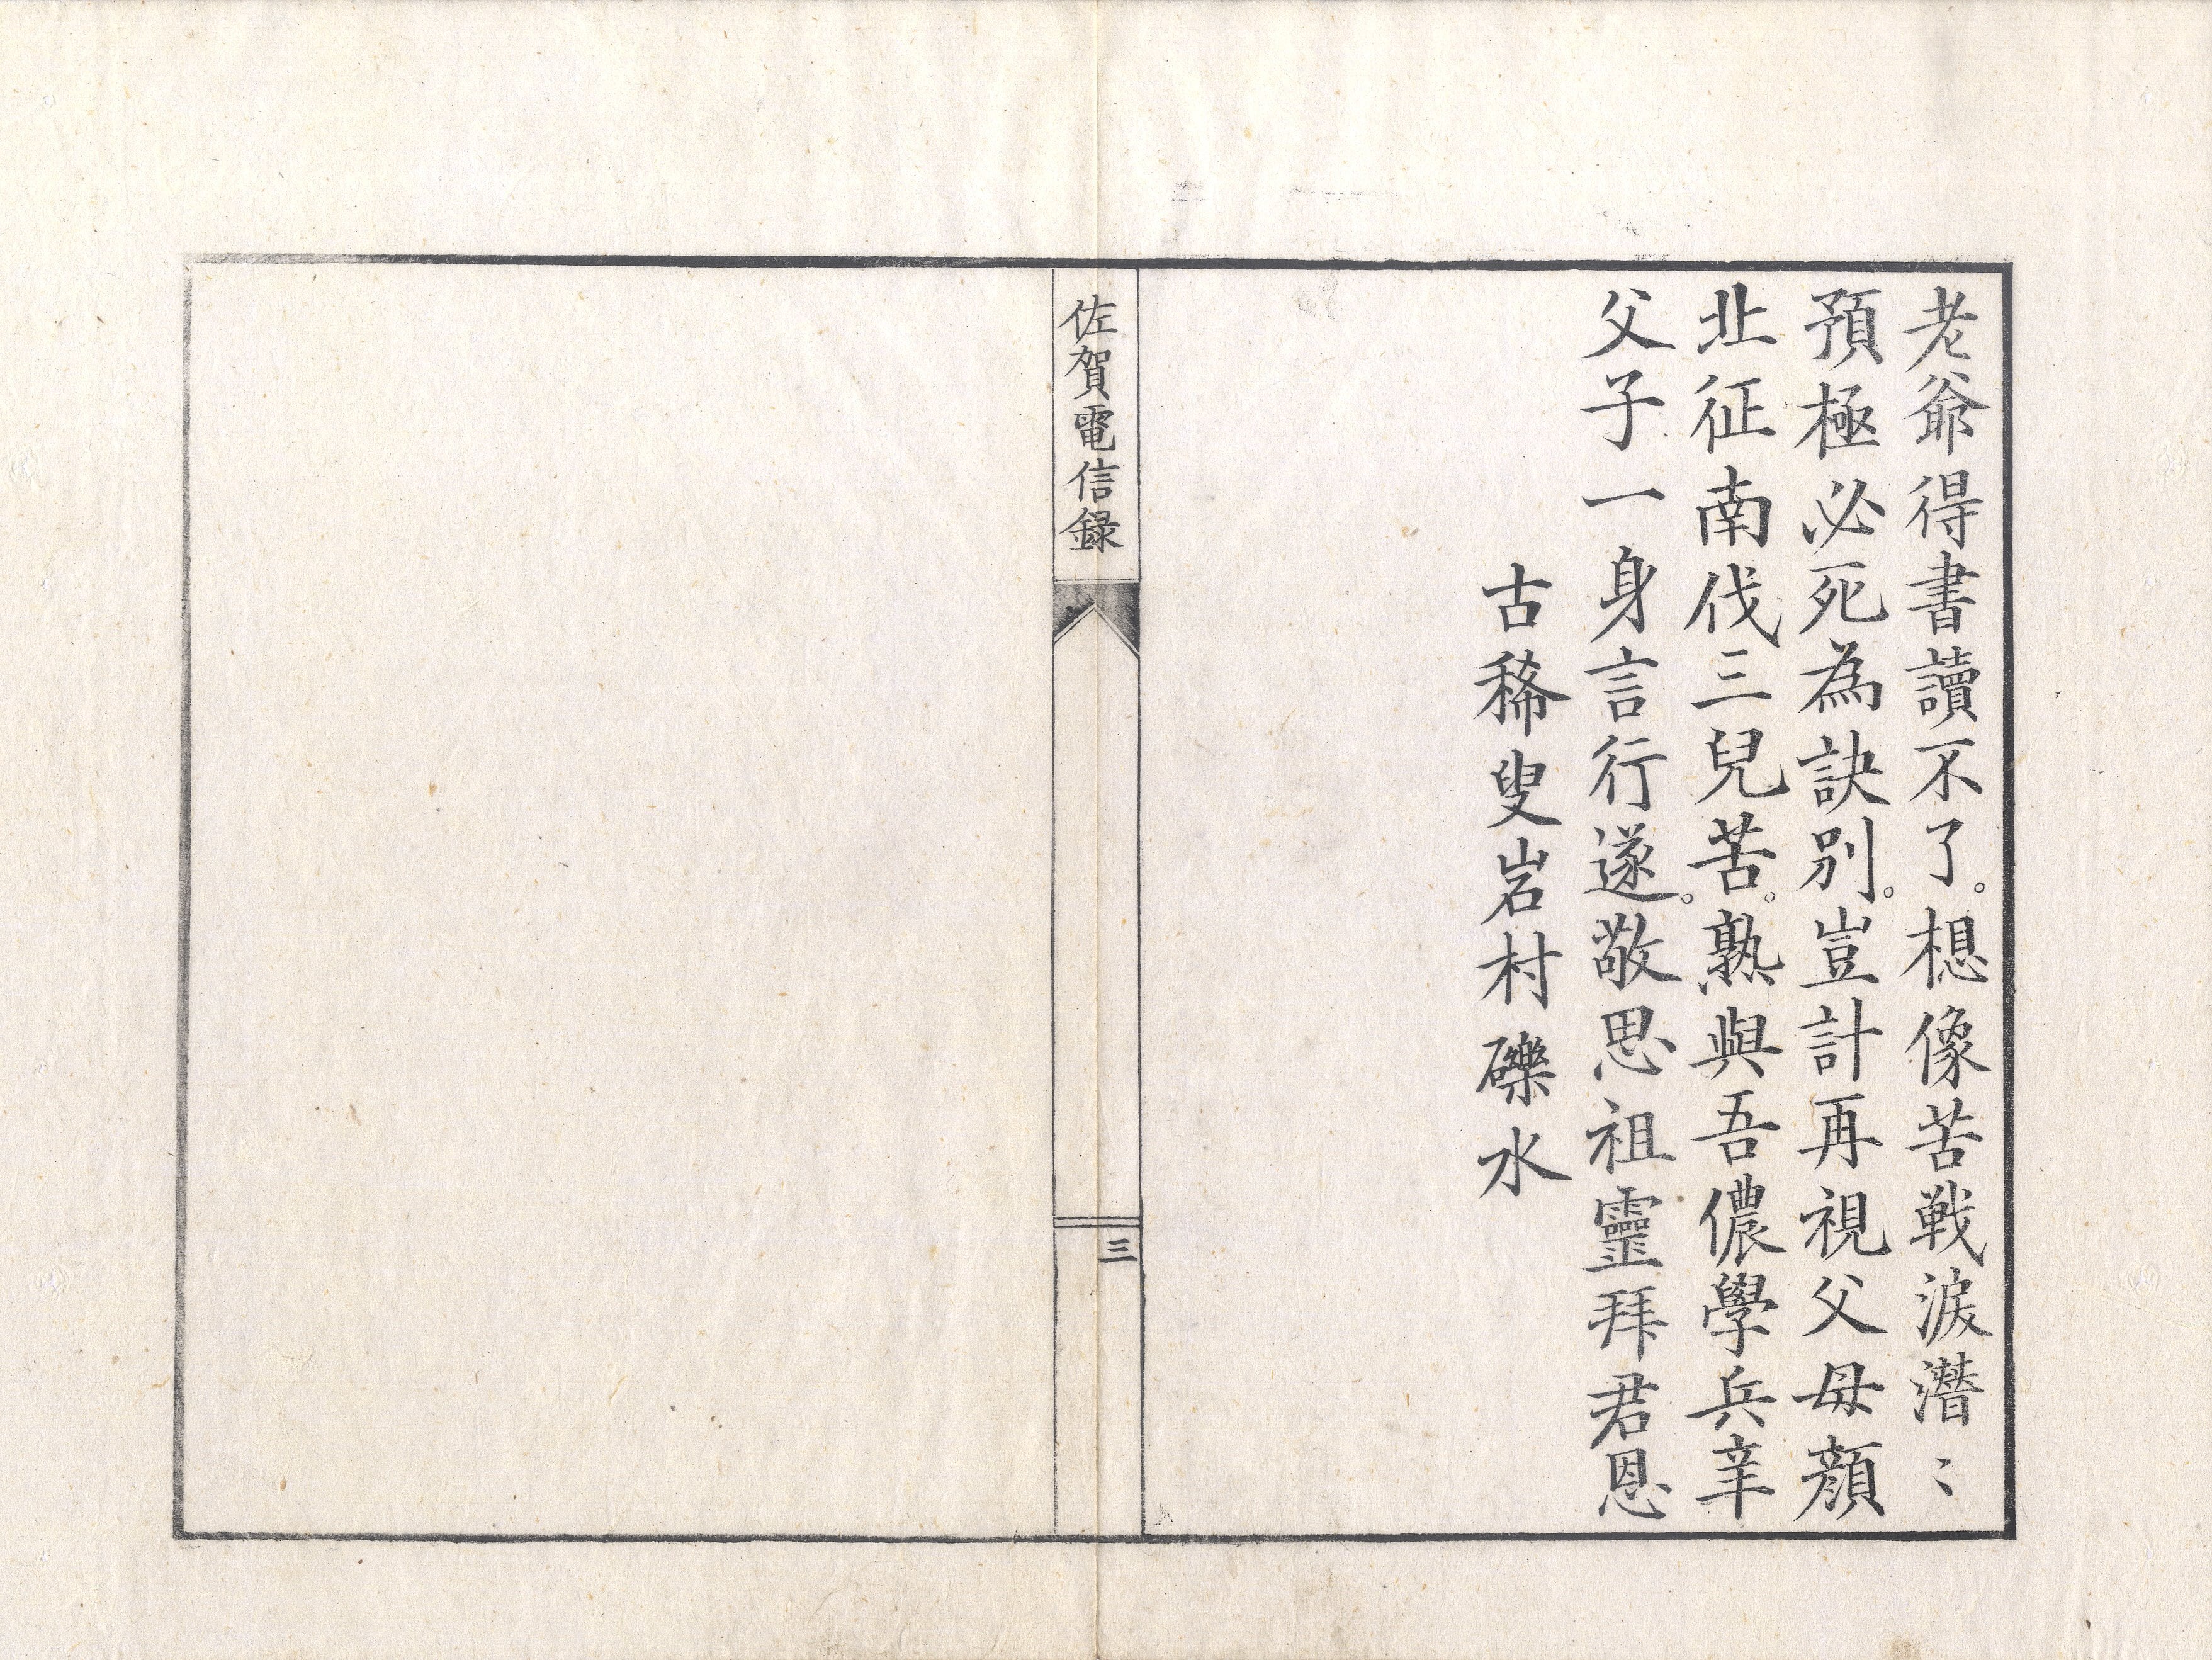 老爺得書讀不了。想像苦戦淚潛〻
預極必死為訣別。豈計再視父母顔
北征南伐三兒苦。熟與吾儂學兵辛
父子一身言行遂。敬思祖靈拜君恩
古稀叟岩村礫水
佐賀電信録
三